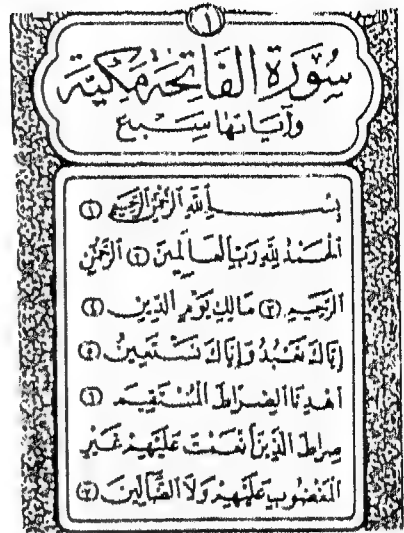 ١
سُورَةُ الفَاتِحَةِ مَكِّيَّة
وآيَاتهَا سَبْع
بِسْمِ ٱللَّهِ ٱلرَّحْمَٰنِ ٱلرَّحِيمِ ۝١
ٱلْحَمْدُ لِلَّهِ رَبِّ ٱلْعَالَمِينَ ۝٢ ٱلرَّحْمَٰنِ
ٱلرَّحِيمِ ۝٣ مَالِكِ يَوْمِ ٱلدِّينِ ۝٤
إِيَّاكَ نَعْبُدُ وَإِيَّاكَ نَسْتَعِينُ ۝٥
ٱهْدِنَا ٱلصِّرَاطَ ٱلْمُسْتَقِيمَ ۝٦
صِرَاطَ ٱلَّذِينَ أَنْعَمْتَ عَلَيْهِمْ غَيْرِ
ٱلْمَغْضُوبِ عَلَيْهِمْ وَلَا ٱلضَّآلِّينَ ۝٧